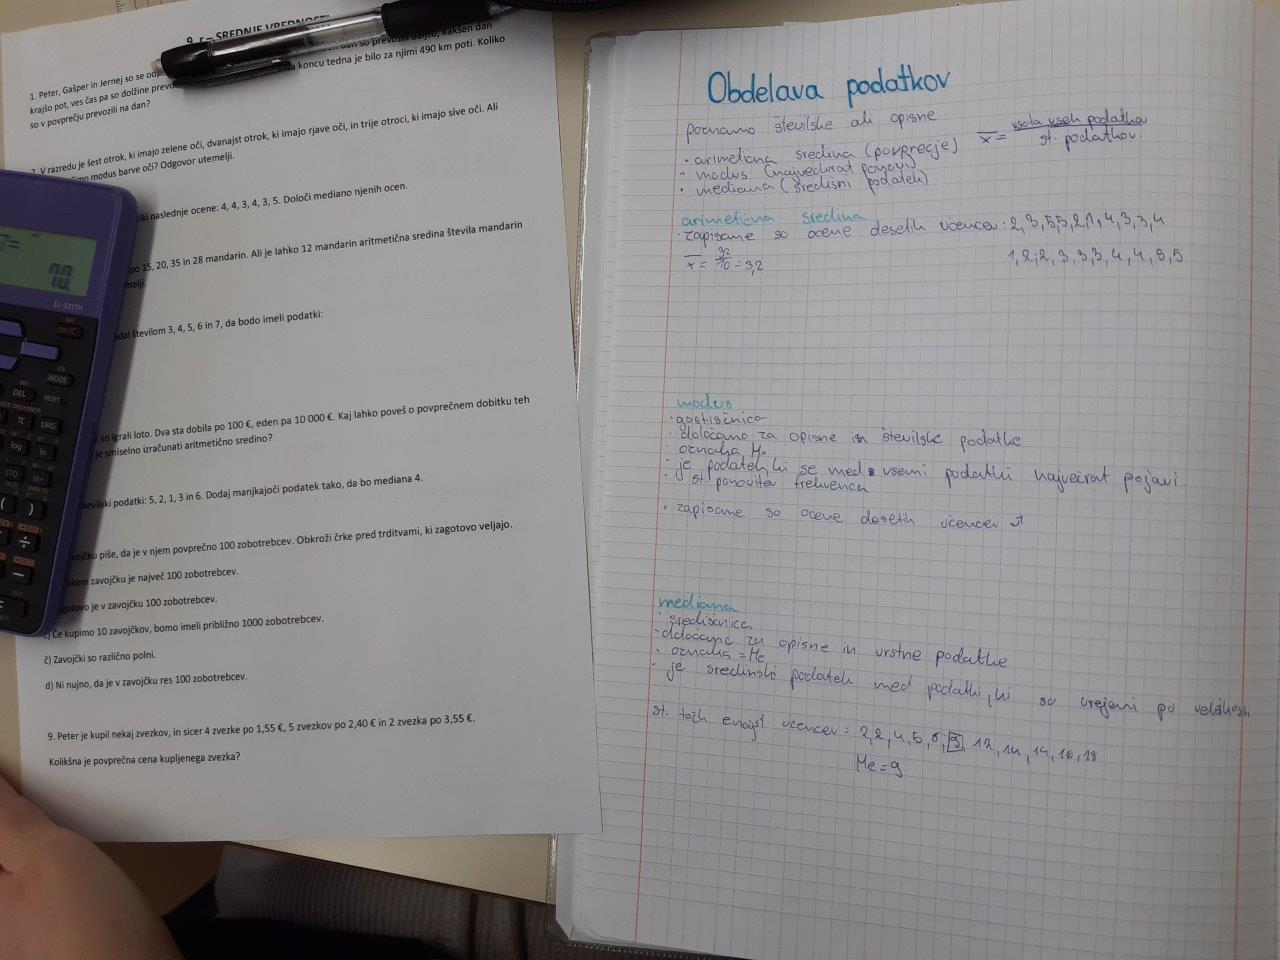 9. r – SREDNJE VREDNOSTI
1. Peter, Gašper in Jernej so se
so prevozili daljšo, kakšen dan
krajšo pot, ves čas pa so dolžine
koncu tedna je bilo za njimi 490 km poti. Koliko
so v povprečju prevozili na dan?
V razredu je šest otrok, ki imajo zelene oči, dvanajst otrok, ki imajo rjave oči, in trije otroci, ki imajo sive oči. Ali
modus barve oči? Odgovor utemelji.
naslednje ocene: 4, 4, 3, 4, 3, 5. Določi mediano njenih ocen.
po 15, 20, 35 in 28 mandarin. Ali je lahko 12 mandarin aritmetična sredina števila mandarin
številom 3, 4, 5, 6 in 7, da bodo imeli podatki:
so igrali loto. Dva sta dobila po 100 €, eden pa 10 000 €. Kaj lahko poveš o povprečnem dobitku teh
je smiselno izračunati aritmetično sredino?
podatki: 5, 2, 1, 3 in 6. Dodaj manjkajoči podatek tako, da bo mediana 4.
piše, da je v njem povprečno 100 zobotrebcev. Obkroži črke pred trditvami, ki zagotovo veljajo.
zavojčku je največ 100 zobotrebcev.
je v zavojčku 100 zobotrebcev.
c) Če kupimo 10 zavojčkov, bomo imeli približno 1000 zobotrebcev.
č) Zavojčki so različno polni.
d) Ni nujno, da je v zavojčku res 100 zobotrebcev.
9. Peter je kupil nekaj zvezkov, in sicer 4 zvezke po 1,55 €, 5 zvezkov po 2,40 € in 2 zvezka po 3,55 €.
Kolikšna je povprečna cena kupljenega zvezka?
EL-531TH
ON/C
CA
MODE
INS
DEL
RESET
DRG
log
ln
STO
M+
Obdelava podatkov
poznamo številske ali opisne
x = vsota vseh podatkov
št. podatkov.
• arimetična sredina (povprečje)
• modus (največkrat ponovi)
• mediana (središni podatek)
arimetična sredina
• zapisane so ocene desetih učencev: 2, 3, 5, 5, 2, 1, 4, 3, 3, 4
x = 32/10 = 3,2
1, 2, 2, 3, 3, 3, 4, 4, 5, 5
modus
• gostiščnica
• določamo za opisne in številske podatke
• oznaka Mo
• je podatek, ki se med vsemi podatki največkrat pojavi.
• št ponovitev frekvenca
• zapisane so ocene desetih učencev
mediana
• središčnica
• določamo za opisne in vrstne podatke
• oznaka = Me
• je sredinski podatek med podatki, ki so urejeni po velikosti
št. točk enajst učencev: 2, 2, 4, 5, 6, 9, 12, 14, 14, 16, 18
Me = 9